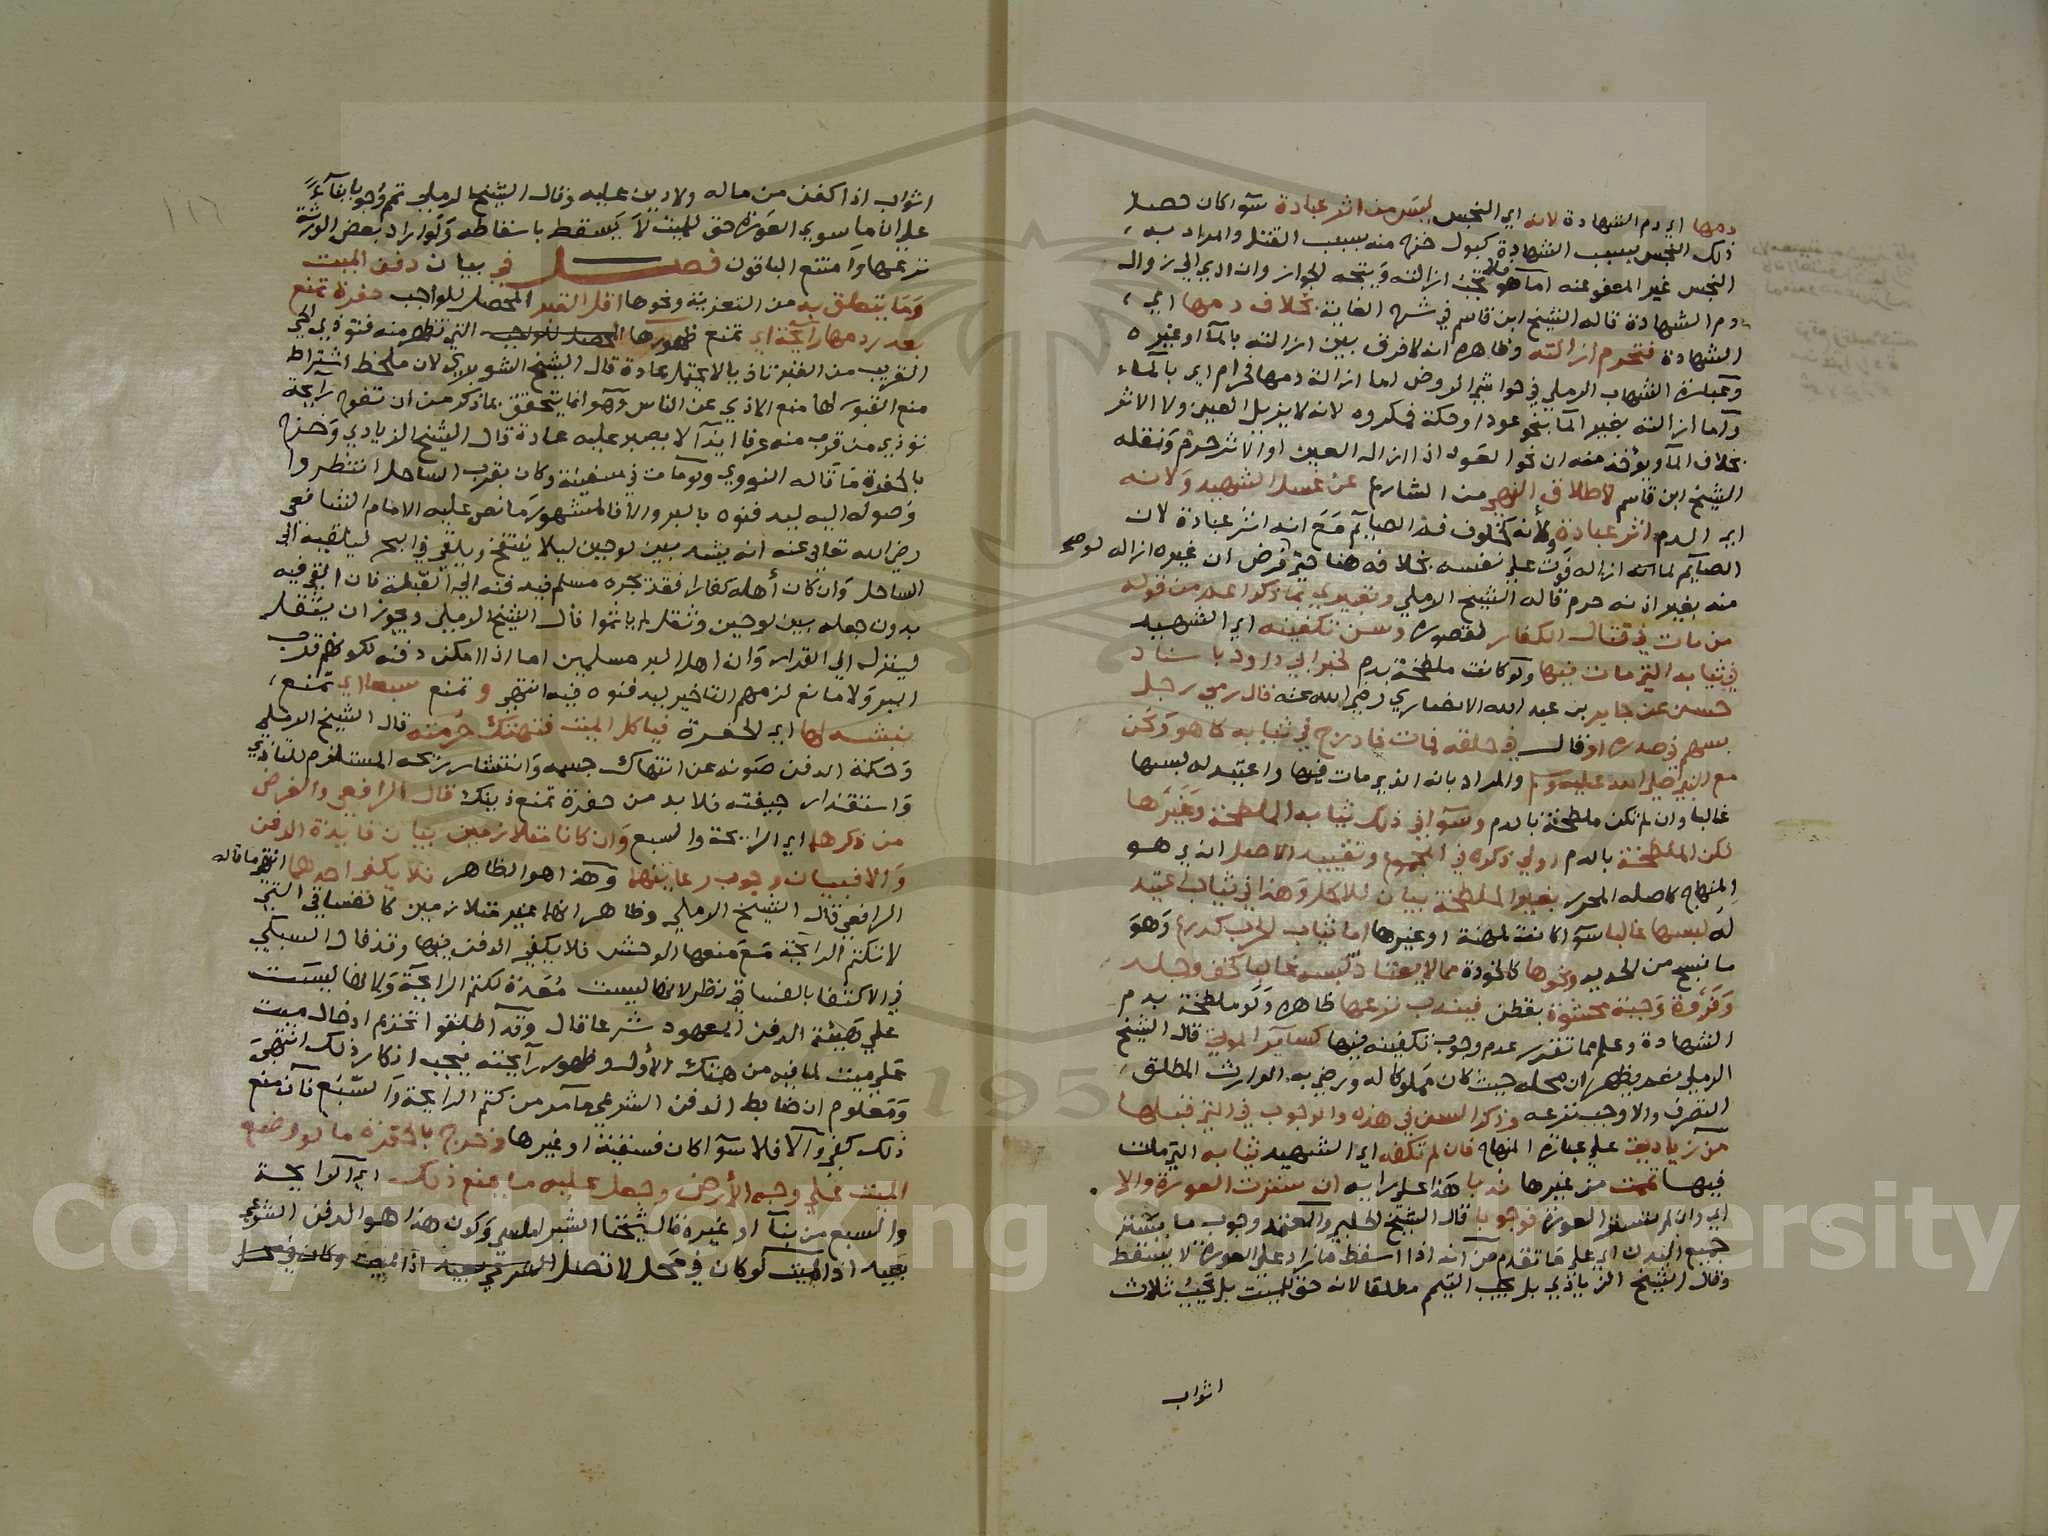 دمها اي دم الشهادة لانه اي النجس ليس من اثر عبادة سوآ كان حصل
ذلك النجس بسبب الشهادة كبول خرج منه بسبب القتل والمراد به
النجس غير المعفو عنه اما هو فلا تجب ازالته ويتجه الجواز وان ادي الي زوال
دم الشهادة قاله الشيخ ابن قاسم في شرح الغاية بخلاف دمها اي
الشهادة فتحرم ازالته وظاهره انه لا فرق بين ازالته بالمآ او غيره
وعبارة الشهاب الرملي في حواشي الروض اما ازالة دمها فحرام اي بالمآء
واما ازالته بغير المآ بنحو عود او حكة فمكروه لانه لا يزيل العين ولا الاثر
بخلاف المآ ويؤخذ منه ان نحو العود اذا ازال العين او الاثر حرم ونقله
الشيخ ابن قاسم لاطلاق النهي من الشارع عن غسل الشهيد ولانه
اي الدم اثر عبادة ولانه كخلوف فم الصايم مع انه اثر عبادة لان
الصايم لما ازاله فوت علي نفسه بخلافه هنا حتي فرض ان غيره ازاله
منه بغير اذنه حرم قاله الشيخ الرملي وتعبيري بما ذكر اعم من قوله
من مات في قتال الكفار لقصوره وسن تكفينه اي الشهيد
في ثيابه التي مات فيها ولو كانت ملطخة بدم لخبر ابي داود باسناد
حسن عن جابر بن عبد الله الانصاري رضي الله عنه قال رمي رجل
بسهم في صدره او قال في حلقه فمات فادرج في ثيابه كما هو ونحن
مع النبي صلي الله عليه وسلم والمراد بانه الذي مات فيها واعتيد لبسها
غالبا وان لم تكن ملطخة بالدم وسوآ في ذلك ثيابه الملطخة وغيرها
لكن الملطخة بالدم اولي ذكره في المجموع وتقييد الاصل الذي هو
المنهاج كاصله المحرر بغير الملطخة بيان للاكمل وهذا في ثياب اعتيد
له لبسها غالبا سوآ كانت لمهنة او غيرها اما ثياب الحرب كدرع وهو
ما نسج من الحديد ونحوها كالخوذة مما لا يعتاد لبسه غالبا كخف وجلد
وفروة وجبة محشوة بقطن فيندب نزعها ظاهره ولو ملطخة بدم
الشهادة وعلم مما تقرر عدم وجوب تكفينه فيها كساير الموتي قال الشيخ
الرملي نعم يظهر ان محله حيث كان مملوكا له ورضي به الوارث المطلق
التصرف والا وجب نزعه وذكر السن في هذه والوجوب في التي قبلها
من زيادتي علي عبارة المنهاج فان لم تكفه اي الشهيد ثيابه التي مات
فيها تممت من غيرها ندبا هذا علي رايه ان سترت العورة والا
اي وان لم تستر العورة فوجوبا قال الشيخ الحلبي والمعتمد وجوب ما يستر
جميع البدن اي علي ما تقدم من انه اذا اسقط ما زاد علي العورة لا يسقط
وقال الشيخ الزيادي بل يجب التيمم مطلقا لانه حق للميت بل يجب ثلاث
اثواب
اثواب اذا كفن من ماله ولا دين عليه وقال الشيخ الرملي تمم وجوبا بنآءً
علي ان ما سوي العورة حق للميت لا يسقط باسقاطه ولو اراد بعض الورثة
نزعها وامتنع الباقون فصل في بيان دفن الميت
وما يتعلق به من التعزية ونحوها اقل القبر المحصل للواجب حفرة تمنع
بعد ردمها رايحة اي تمنع ظهورها التي تظهر منه فتؤذي الحي
القريب من القبر تاذيا لا يحتمل عادة قال الشيخ الشوبري لان ملحظ اشتراط
منع القبور لها منع الاذي عن الناس وهو انما يتحقق بما ذكر من ان تفوح رايحة
تؤذي من قرب منه عرفا ايذآ لا يصبر عليه عادة قال الشيخ الزيادي وخرج
بالحفرة ما قاله النووي ولو مات في سفينة وكان بقرب الساحل انتظروا
وصوله اليه ليدفنوه بالبر والا فالمشهور ما نص عليه الامام الشافعي
رضي الله تعالي عنه انه يشد بين لوحين ليلا ينتفخ ويلقي في البحر ليلقيه الي
الساحل وان كان أهله كفارا فقد يجده مسلم فيدفنه الي القبلة فان القي فيه
بدون جعله بين لوحين وثقل لم ياثموا قال الشيخ الرملي ويجوز ان يثقل
لينزل الي القرار وان اهل البر مسلمين اما اذا امكن دفنه لكونهم قرب
البر ولا مانع لزمهم التاخير ليدفنوه فيه انتهي و تمنع سبعا اي تمنع
نبشه لها اي الحفرة فياكل الميت فتنهتك حرمته قال الشيخ الرملي
وحكمة الدفن صونه عن انتهاك جسمه وانتشار ريحه المستلزم للتاذي
واستقذار جيفته فلا بد من حفرة تمنع ذينك قال الرافعي والغرض
من ذكرهما اي الرايحة والسبع وان كانا متلازمين بيان فايدة الدفن
والا فبيان وجوب رعايتهما وهذا هو الظاهر فلا يكفي احدهما انتهي ما قاله
الرافعي قال الشيخ الرملي وظاهر انهما غير متلازمين كالفساقي التي
لا تكتم الرايحة مع منعها الوحش فلا يكفي الدفن فيها وقد قال السبكي
في الاكتفا بالفساقي نظر لانها ليست معدة لكتم الرايحة ولانها ليست
علي هيئة الدفن المعهود شرعا قال وقد اطلقوا تحريم ادخال ميت
علي ميت لما فيه من هتك الأول وظهور رآيحته فيجب انكار ذلك انتهي
ومعلوم ان ضابط الدفن الشرعي مآ مر من كتم الرايحة والسبع فان منع
ذلك كفي والا فلا سوآ كان فسقية او غيرها وخرج بالحفرة ما لو وضع
الميت علي وجه الأرض وجعل عليه ما يمنع ذلك اي الرايحة
والسبع من بنآ او غيره قال شيخنا الشبراملسي وكون هذا هو الدفن الشرعي
بعيد اذ الميت لو كان في محل لا تصل